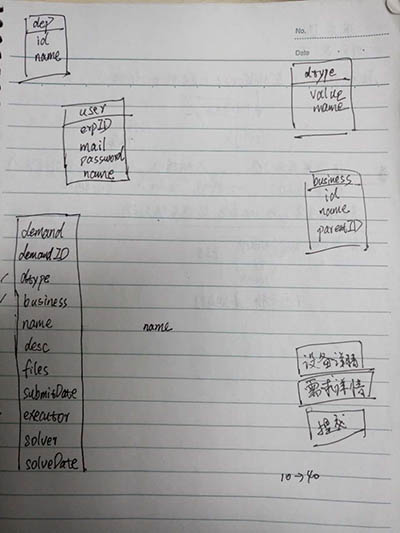 dep
id
name
No.
Date
dtype
value
name
user
erpID
mail
password
name
business
id
name
parentID
demand
demandID
dtype
business
name
desc
files
submitDate
executor
solver
solveDate
name
设备详情
需求详情
提交
10→40